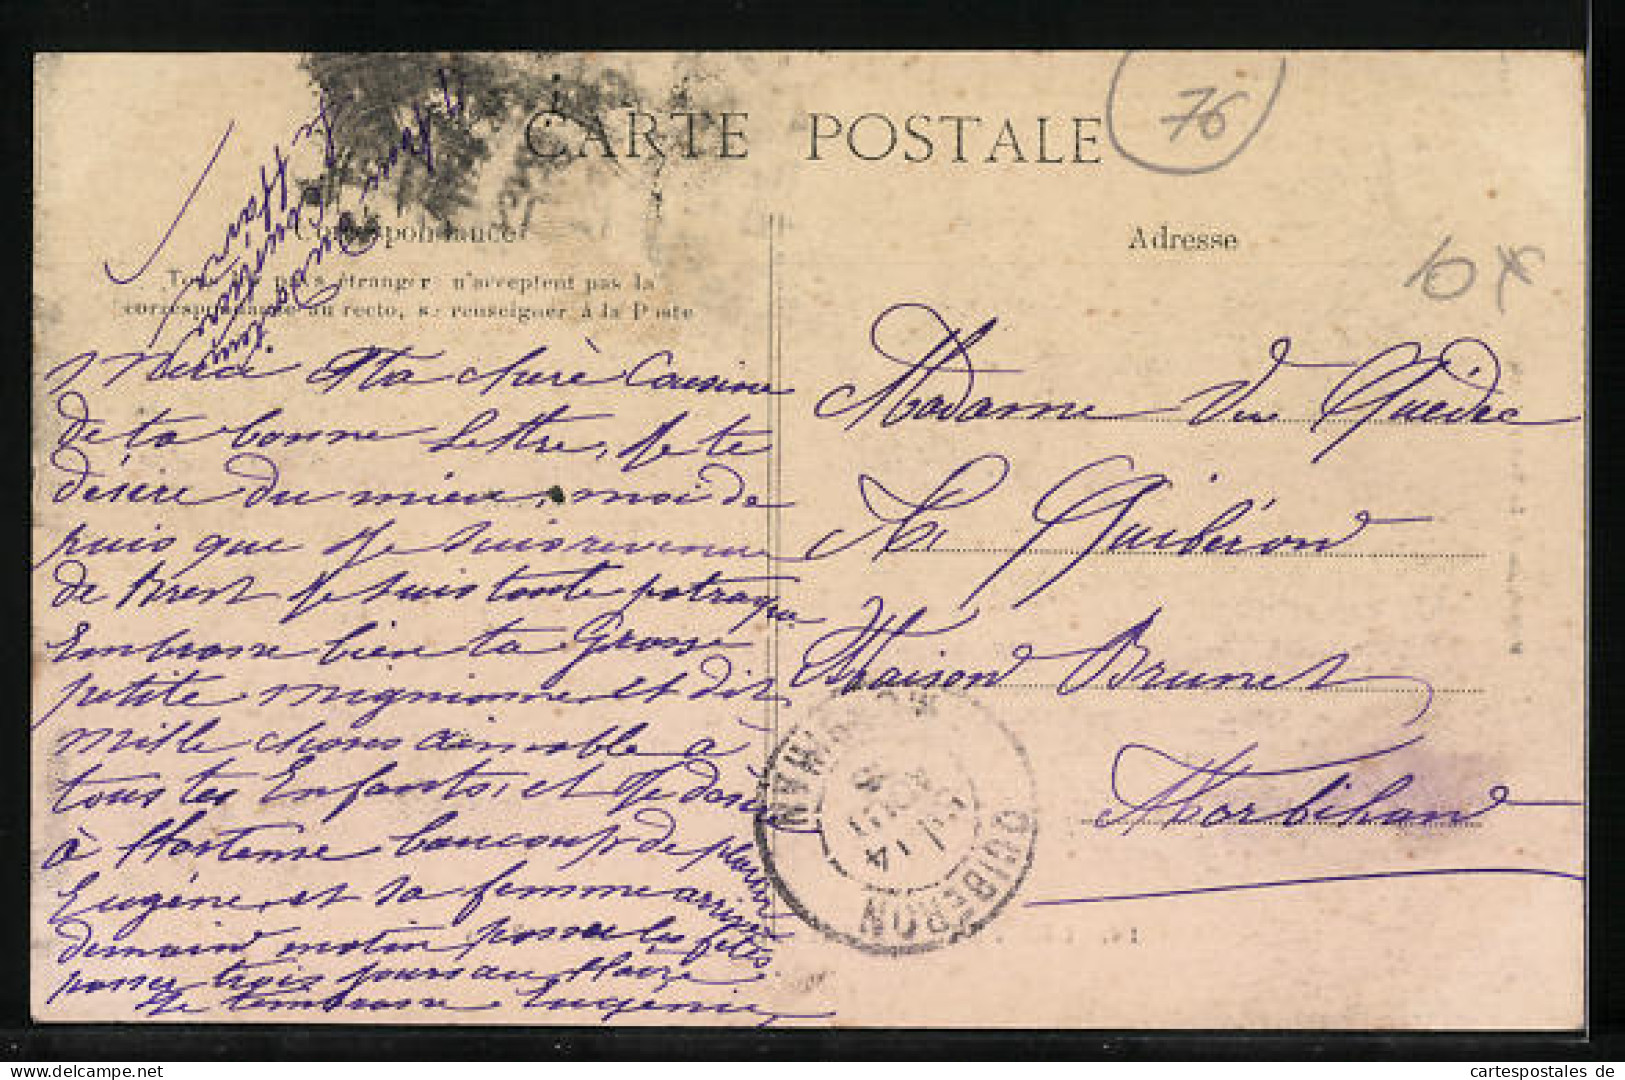 CARTE POSTALE
76
Correspondance
Adresse
Tous les pays étranger n'acceptent pas la
correspondance au recto, se renseigner à la Poste
Merci Ma chère Cousine
de ta bonne lettre, je te
désire du mieux, moi de
puis que je suis revenue
de Brest je suis toute patraque
Embrasse bien ta Grosse
petite mignonne et dit
mille choses aimable à
tous tes Enfants, et Je
à Hortense baucoup de plaisir
Eugène et sa femme arrive
demain matin passer les fêtes
passer trois jours au Havre
Je t'embrasse Eugénie
Madame Vve Quédec
A Quibéron
Maison Brunet
Morbihan
QUIBERON
MORBIHAN
14